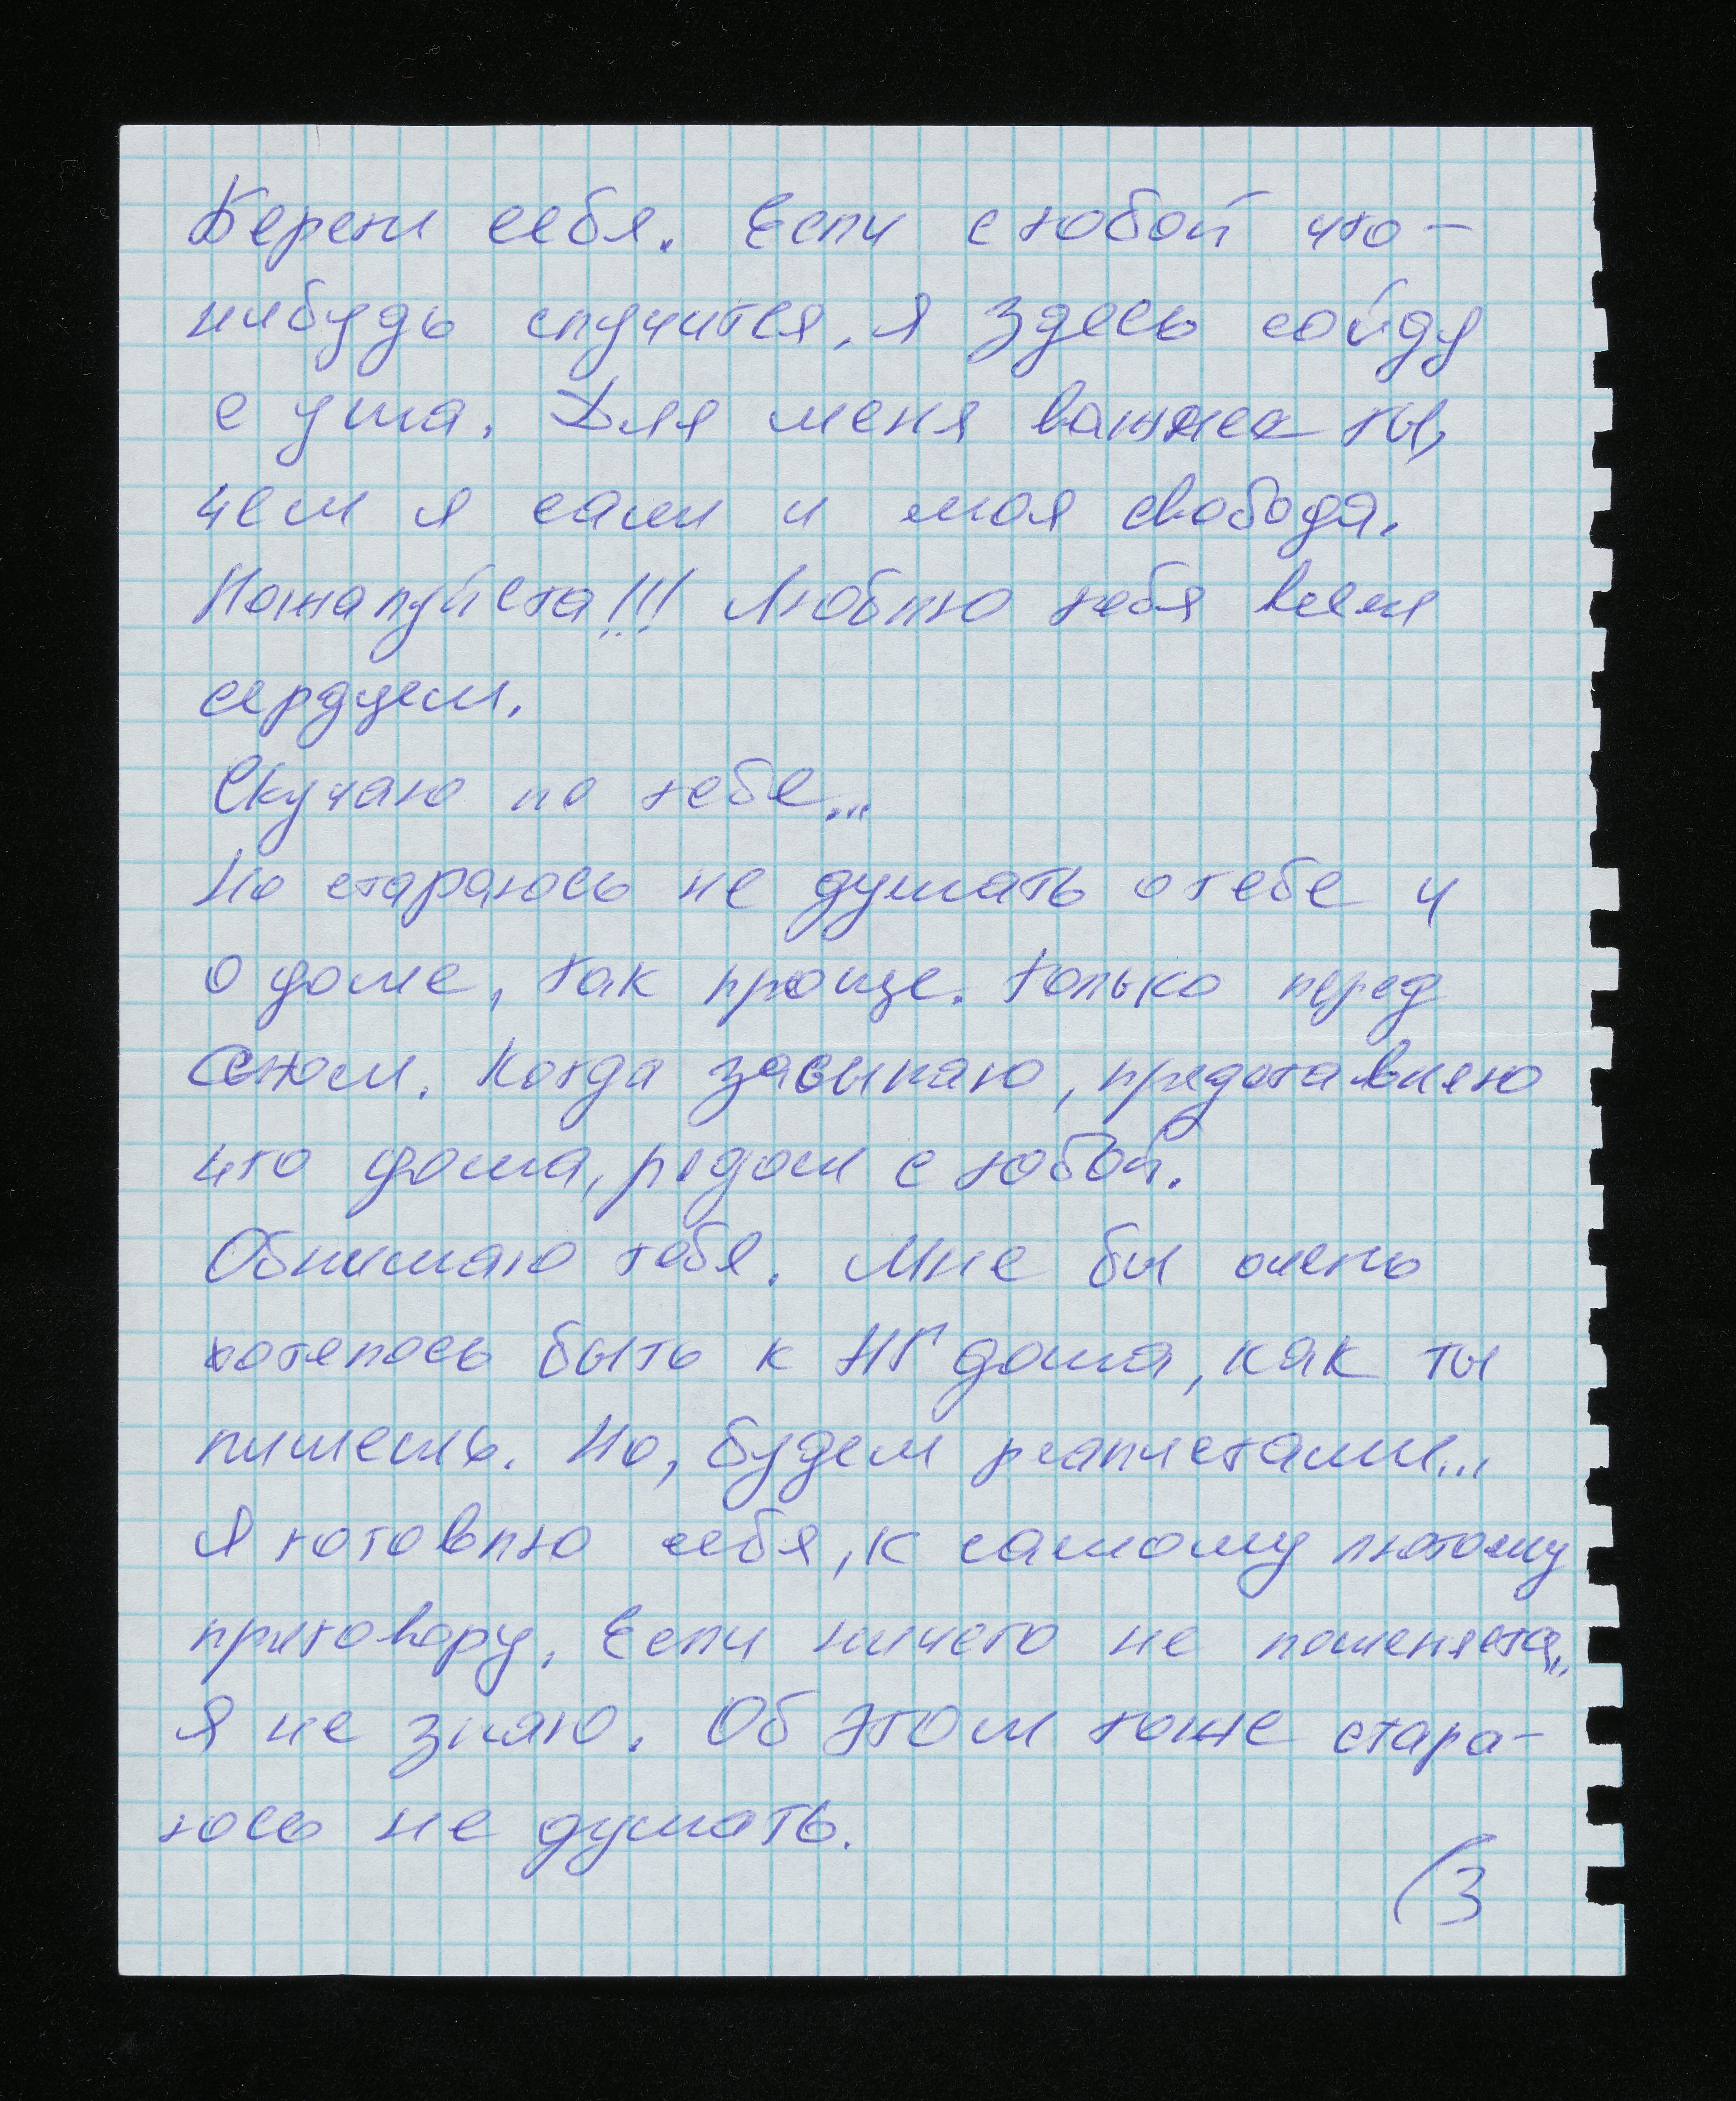 Береги себя. Если с тобой что-
нибудь случится, я здесь сойду
с ума. Для меня важнее ты,
чем я сам и моя свобода.
Пожалуйста!!! Люблю тебя всем
сердцем.
Скучаю по тебе...
Но стараюсь не думать о тебе и
о доме, так проще. Только перед
сном. Когда засыпаю, представляю
что дома, рядом с тобой.
Обнимаю тебя. Мне бы очень
хотелось быть к НГ дома, как ты
пишешь. Но, будем реалистами...
Я готовлю себя, к самому лютому
приговору. Если ничего не поменяется,
я не знаю. Об этом тоже стара-
юсь не думать.
(3